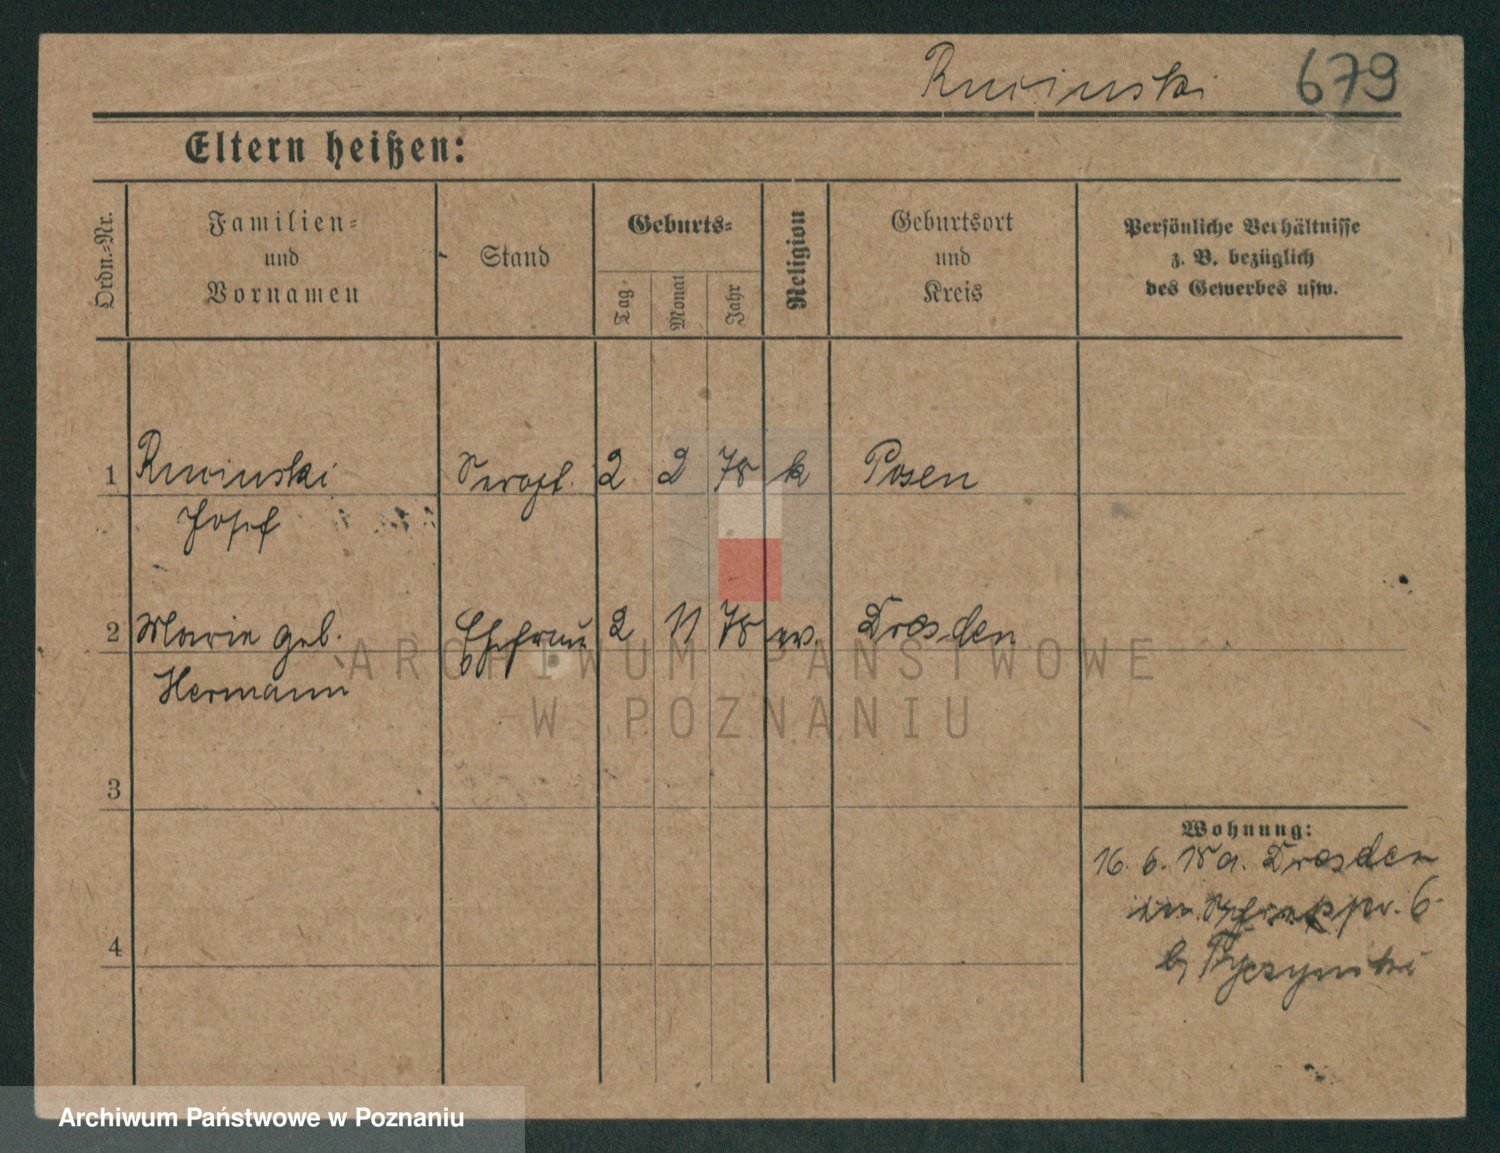 Rucinski 679
Eltern heißen:
Ordn.-Nr.
Familien-
und
Vornamen
Stand
Geburts-
Tag
Monat
Jahr
Religion
Geburtsort
und
Kreis
Persönliche Verhältnisse
z. B. bezüglich
des Gewerbes usw.
1 Rucinski 2 2 78 k Posen
Josef
2 Marie geb. Ehefrau 2 11 78 ev. Dresden
Hermann
3
Wohnung:
16. 6. 18 a. Dresden
6
4
b/
ARCHIWUM PAŃSTWOWE
W POZNANIU
Archiwum Państwowe w Poznaniu